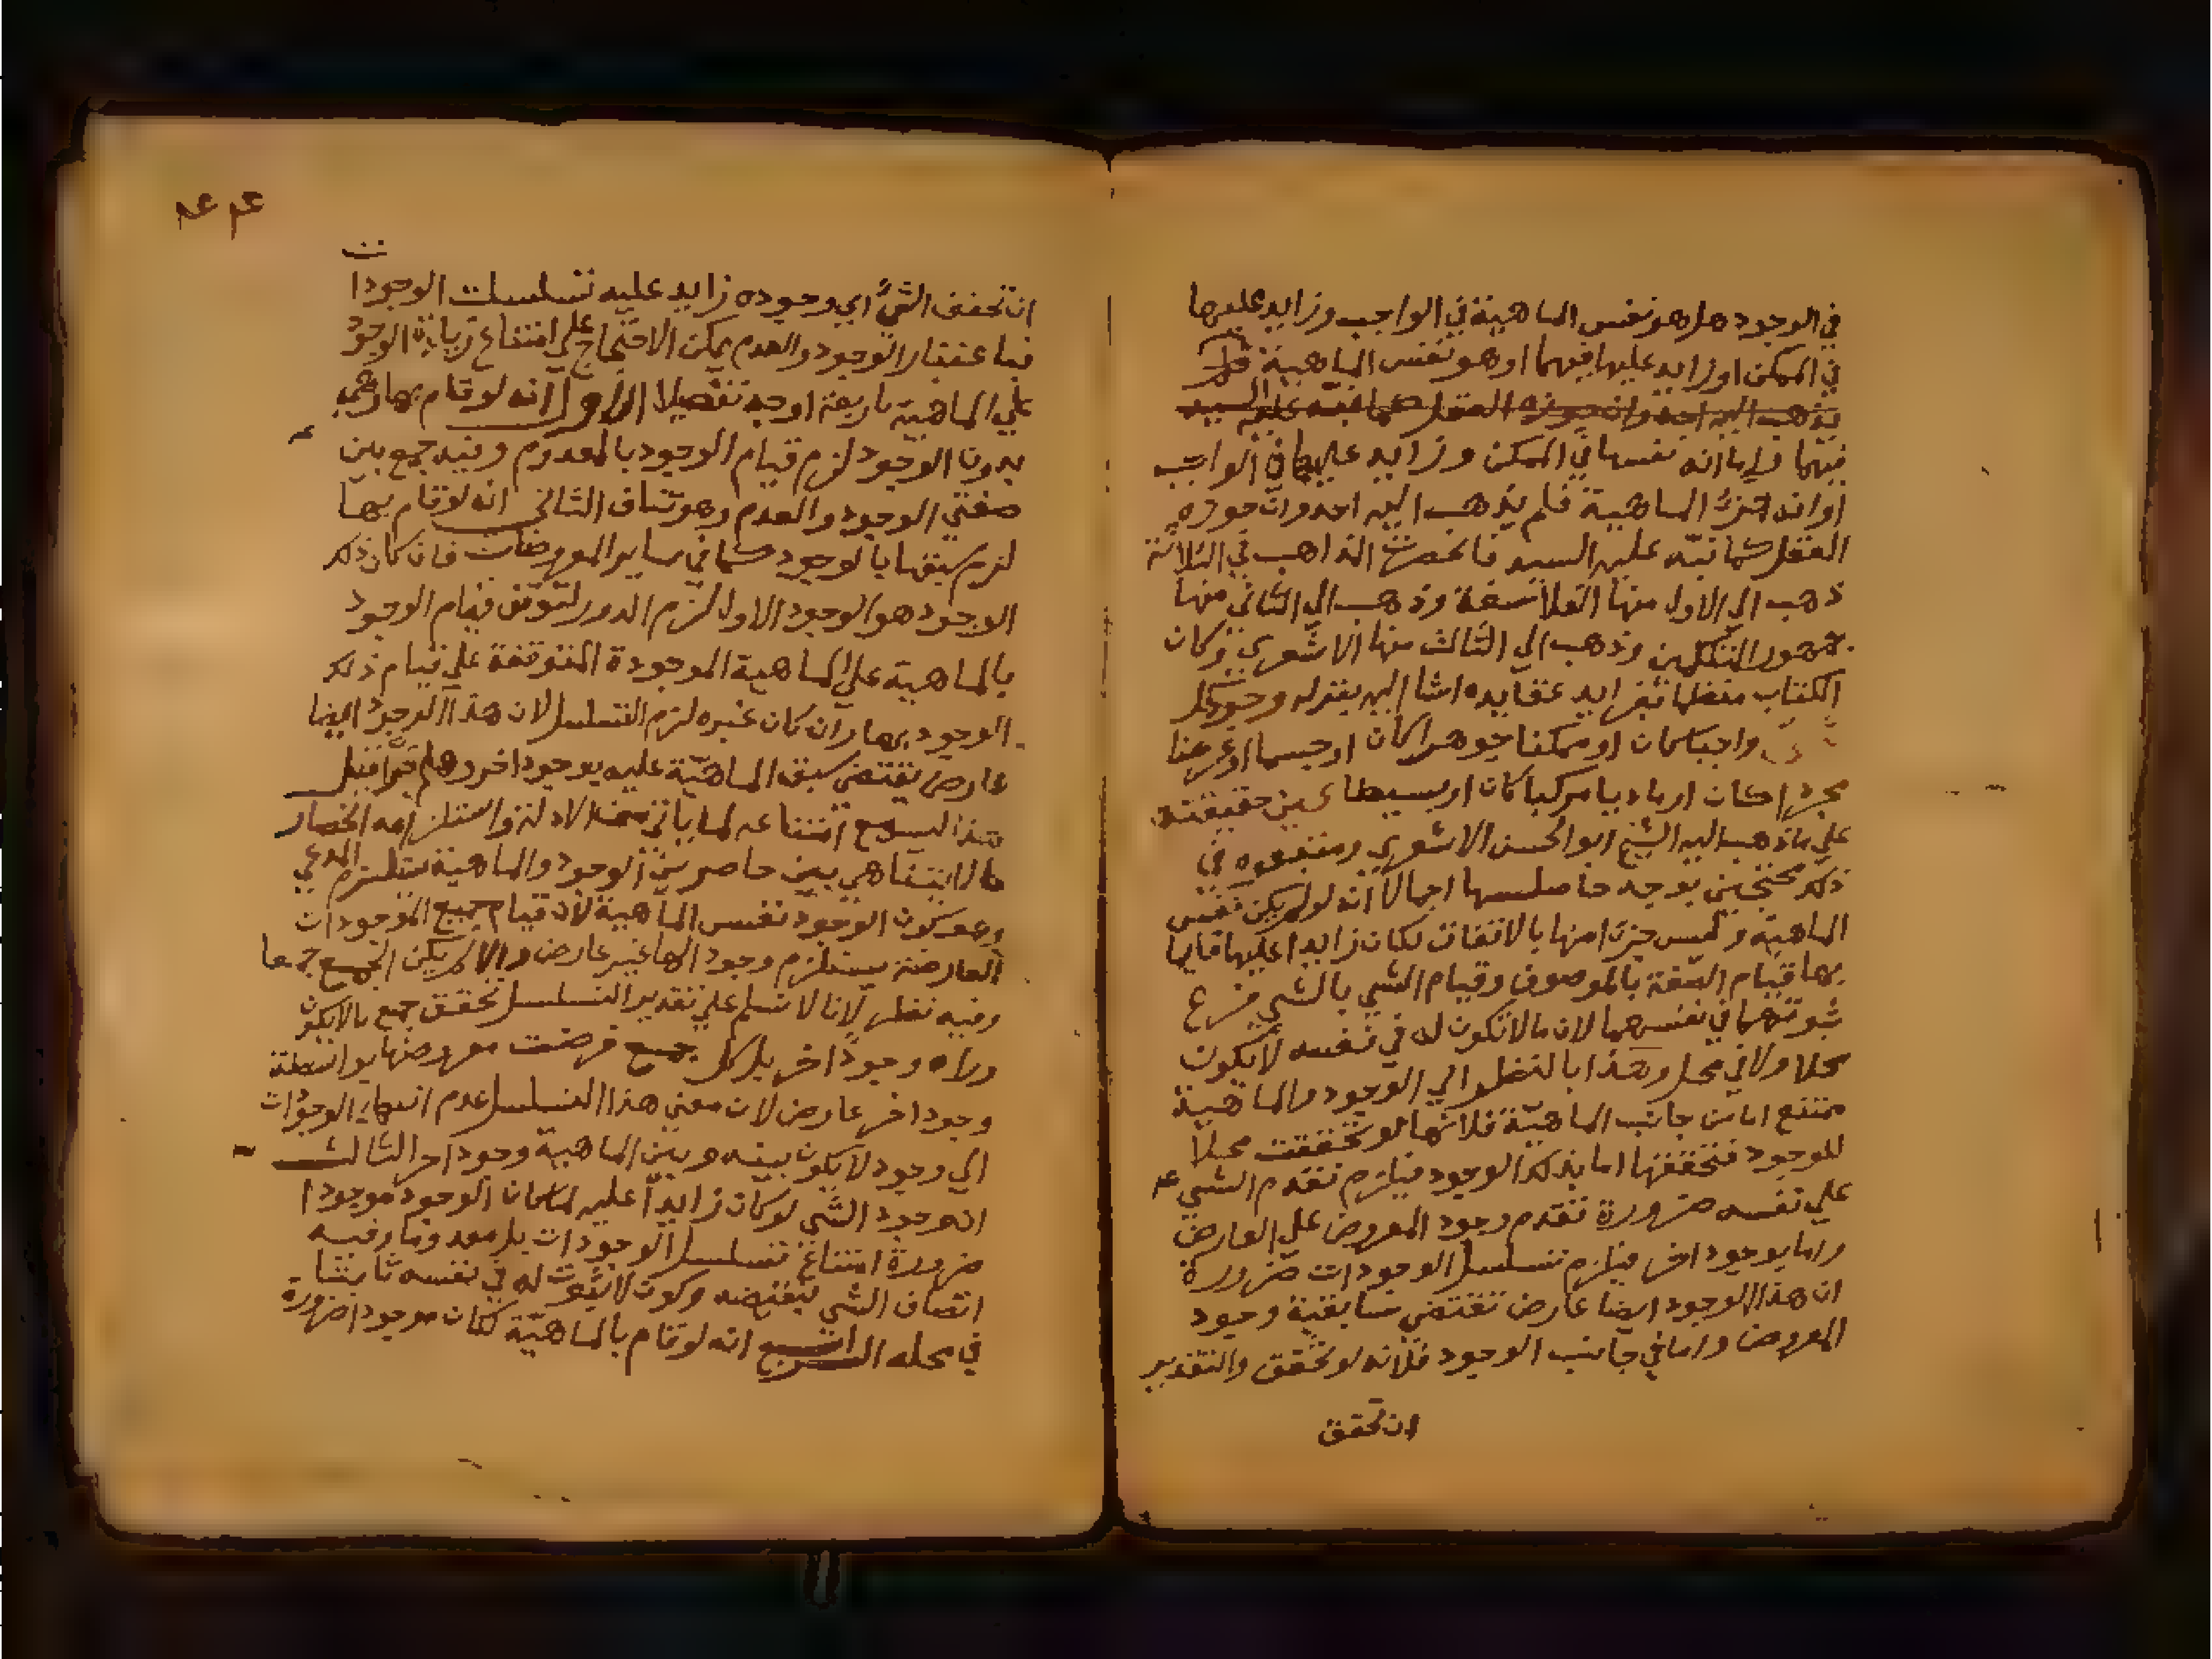 في الوجود هل هو نفس الماهية في الواجب وزايد عليها
في الممكن او زايد عليها فيهما او هو نفس الماهية
يذهب اليه احد وان جوزه العقل كما نبه عليه السيد
فيهما واما انه نفسها في الممكن وزايد عليها في الواجب
او انه جزء الماهية فلم يذهب اليه احد وان جوده
العقل كما نبّه عليه السيد فانحصرت المذاهب في الثلاثة
ذهب الي الاول منها الفلاسفة وذهب الي الثاني منها
جمهور المتكلمين وذهب الي الثالث منها الاشعري وكان
الكتاب عقايده اشا اليه بقوله وجود كل
واجبا كان او ممكنا جوهرا كان او جسما او عرضا
مجردا كان او ماديا مركبا كان او بسيطا عين حقيقته
علي ما ذهب اليه الشيخ ابو الحسن الاشعري ومتبعوه في
ذلك محتجين بوجه حاصلها اجمالا انه لو لم يكن نفس
الماهية وليس جزءا منها بالاتفاق لكان زايدا عليها قايما
بها قيام الصفة بالموصوف وقيام الشي بالشي فرع
ثبوتهما في نفسهما لان ما لا تكون له في نفسه لا يكون
محلا ولا في محل وهذا بالنظر الي الوجود والماهية
ممتنع اما من جانب الماهيّة فلانها لو تحققت محلا
للوجود فتحققها اما بذلك الوجود فيلزم تقدم الشي
علي نفسه ضرورة تقدم وجود المعروض علي العارض
واما بوجود اخر فيلزم تسلسل الوجودات ضرورة
ان هذا الوجود ايضا عارض تقتضي سابقية وجود
المعروض واما في جانب الوجود فلانه لو تحقق والتقدير
ان تحقق
ان تحقق الشي اي وجوده زايد عليه تسلسلت الوجودا
ت
فباعتبار الوجود والعدم يمكن الاحتجاج علي امتناع زيادة الوجود
علي الماهية باربعة اوجه تفصيلا الاول انه لو قام بها وهي
بدون الوجود لزم قيام الوجود بالمعدوم وفيه جمع بين
صفتي الوجود والعدم وهو تناف الثاني انه لو قام بها
لزم سبقها بالوجود كما في ساير المعروضات فان كان ذلك
الوجود هو الوجود الاول لزم الدور لتوقف قيام الوجود
بالماهية علي الماهية الموجودة المتوقفة علي قيام ذلك
الوجود بها وان كان غيره لزم التسلسل لان هذا الوجود ايضا
عارض يقتضي سبق الماهيّة عليه بوجود اخر وهلم جرا فقيل
هذا امتناعه لما ياتي من الادلة واستلزامه انحصار
ما لا يتناهي بين حاصرين الوجود والماهية يستلزم المدعي
وهو كون الوجود نفس الماهية لان قيام جميع الموجودات
العارضة يستلزم وجود الها غير عارض والا لم يكن الجميع جميعا
وفيه نظر لانا لا نسلم علي تقدير التسلسل تحقق جميع ما لا يكون
وراه وجود اخر بل كل جميع فرضت معروضها بواسطة
وجود اخر عارض لان معني هذا التسلسل عدم انتهاء الوجودات
الي وجود لا يكون بينه وبين الماهية وجود اخر الثالث
ان وجود الشي لو كان زايداً عليه لما كان الوجود موجودا
ضرورة امتناع تسلسل الوجودات بل معدوما وفيه
اتصاف الشي بنقيضه وكون لا ثبوت له في نفسه ثابتا
في محله الرابع انه لو قام بالماهيّة لكان موجودا ضرورة